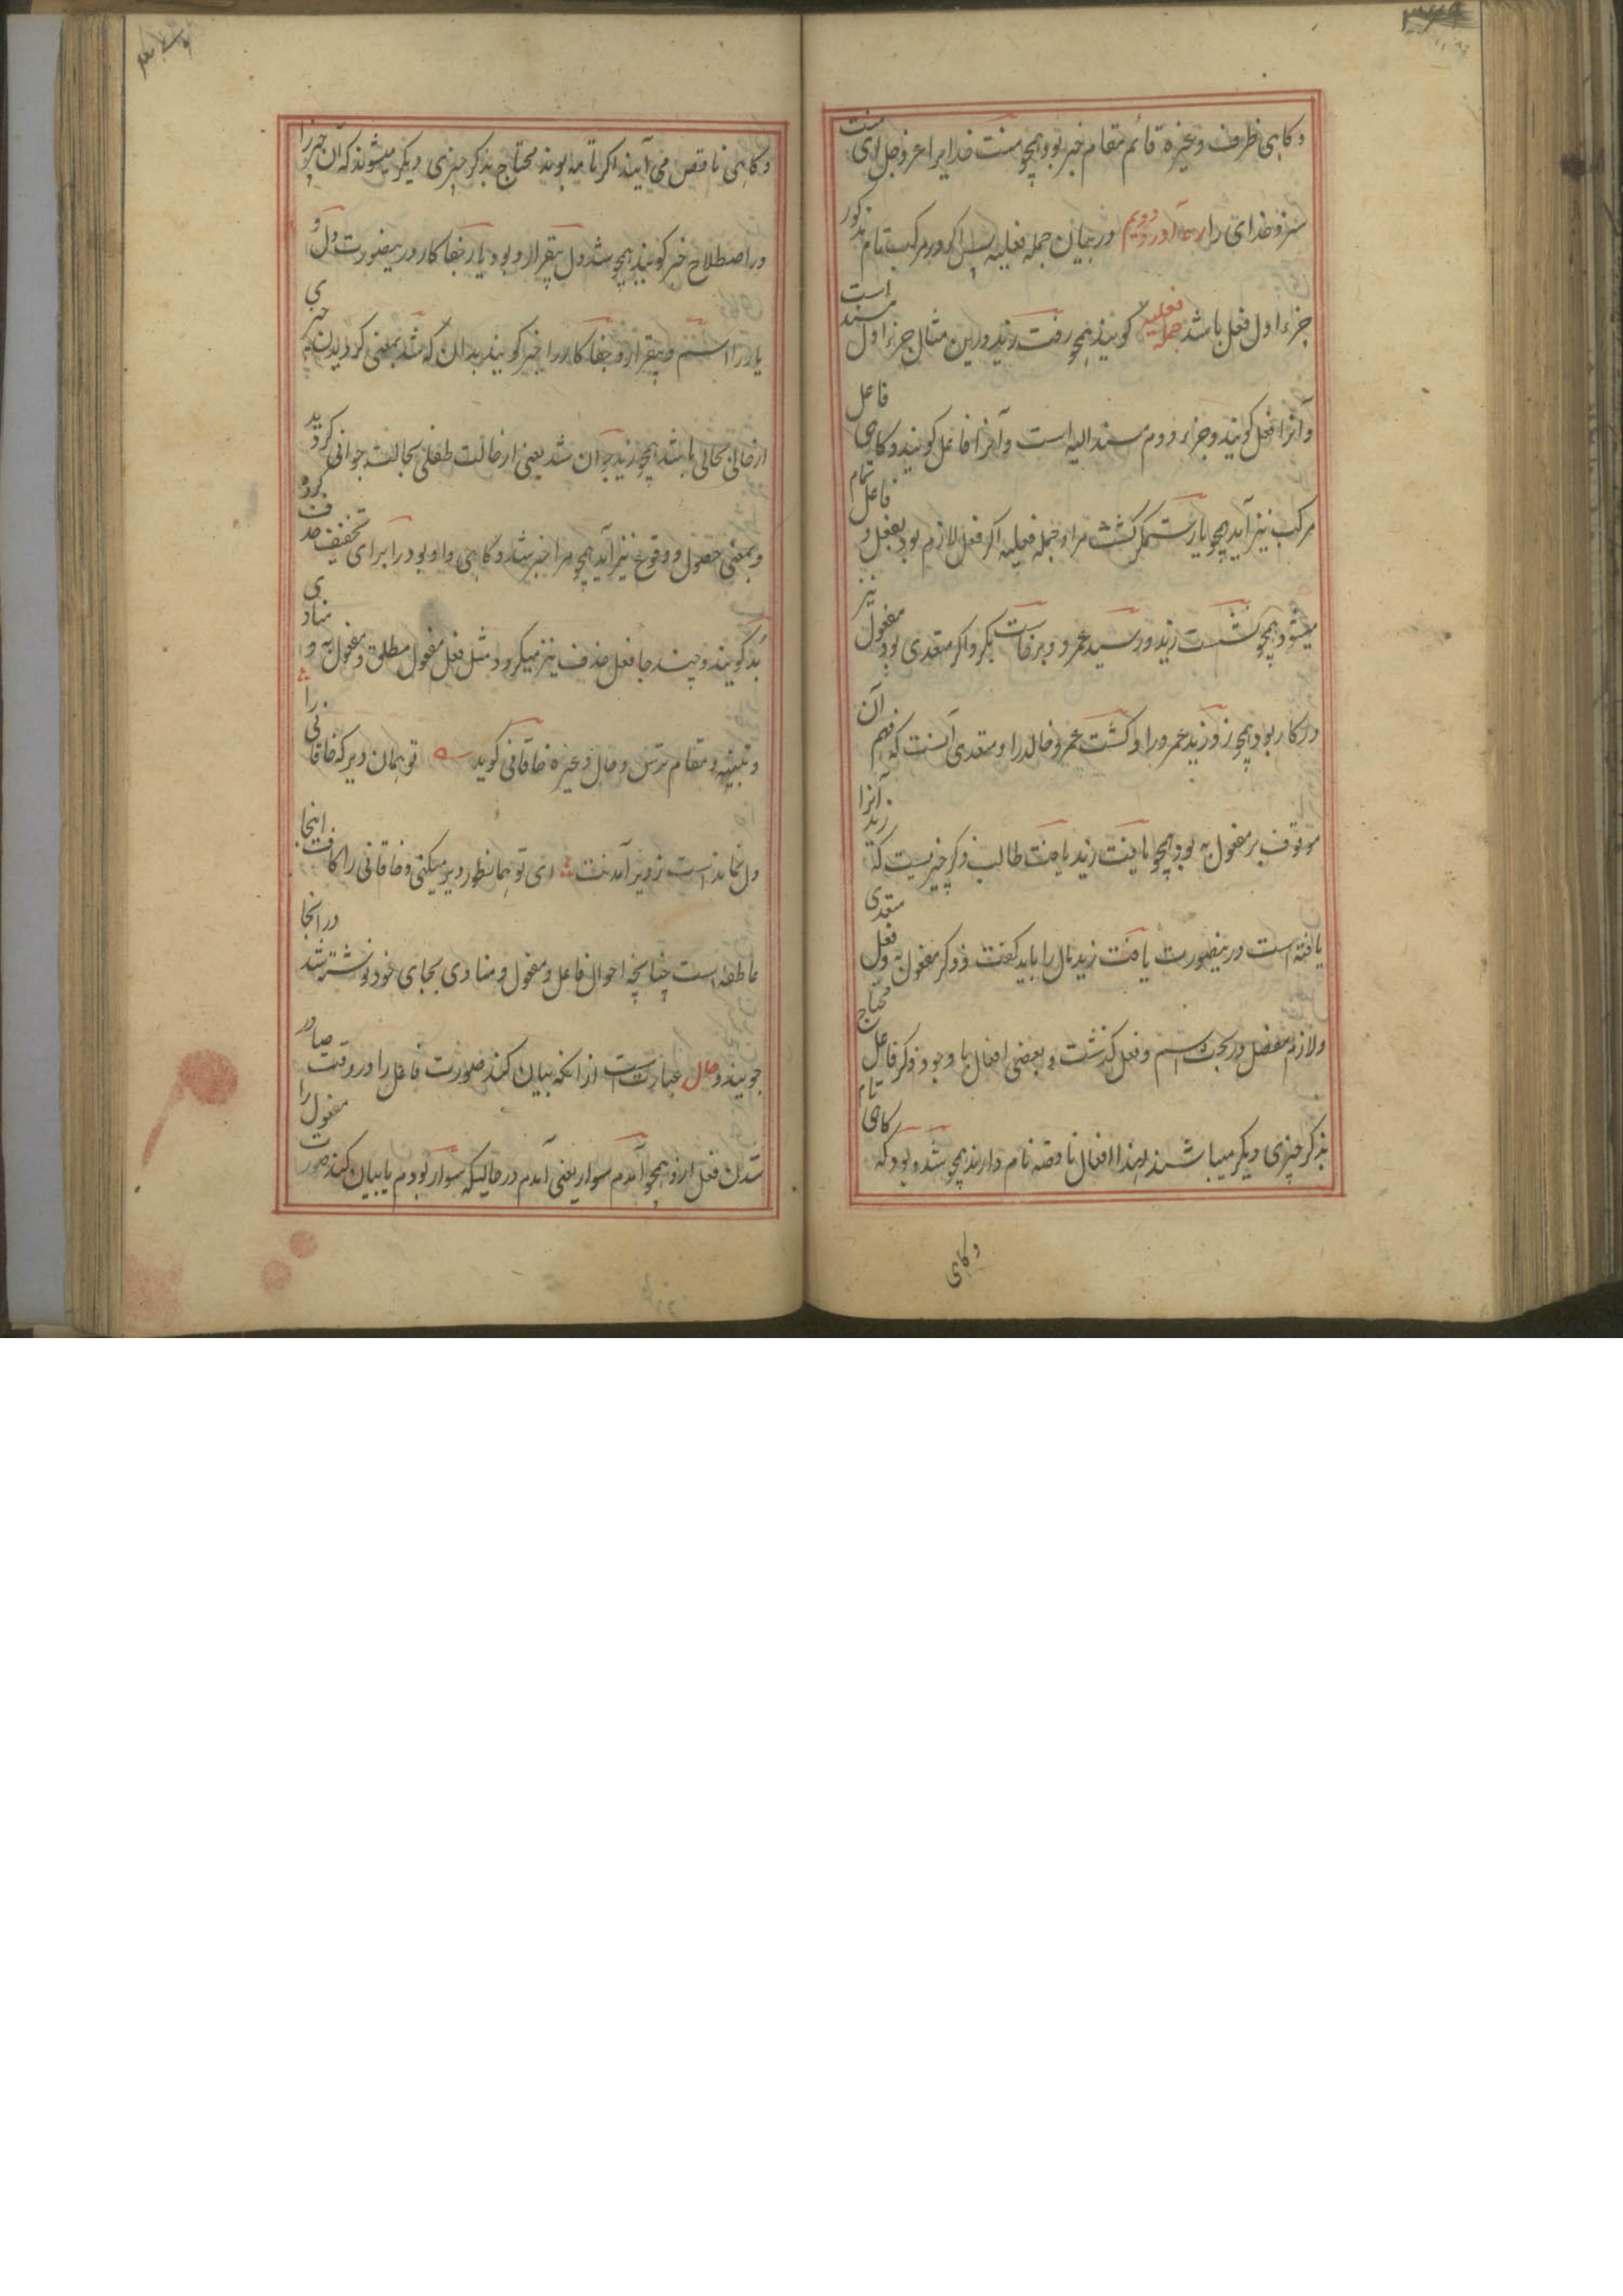 و کاهی ظرف و غیره قائم مقام خبر بود همچو منت خدایرا عز و جل ای منت
سزد خدای را در بیان جمله فعلیه پس اکر در مرکب تام مذکور
جزء اول فعل باشد جمله فعلیه کویند همچو رفت زید درین مثال جزء اول مسند است
و آنرا فعل کویند و جزء دوم مسند الیه است و آنرا فاعل کویند و کاهی فاعل
مرکب نیز آید همچو یار ستمکر کشت مرا و جمله فعلیه اکر فعل لازم بود بفعل و فاعل تمام
میشود همچو نشست زید و رسید عمرو و برخاست بکر و اکر متعدی بود مفعول نیز
درکار بود همچو زد زید عمرو را و کشت عمرو خالد را و متعدی آنست که فهم آن
موقوف بر مفعول به بود همچو یافت زید یافت طالب ذکر چیزیست که زید آنرا
یافته است درینصورت یافت زید مال را باید کفت و ذکر مفعول به و فعل متعدی
و لازم مفصل در بحث اسم و فعل کذشت و بعضی افعال با وجود ذکر فاعل محتاج
بذکر چیزی دیکر میباشند لهذا افعال ناقصه نام دارند همچو شد و بود که کاهی تام
و کاهی
و کاهی ناقص می آیند اکر تامه بوند محتاج بذکر چیزی دیکر میشوند که آن چیز را
در اصطلاح خبر کویند همچو شد دل بیقرار و بود یار جفا کار درینصورت دل و
یار را اسم و بیقرار و جفا کار را خبر کویند بدان که شد بمعنی کردیدن چیزی
از حالی بحالی باشد همچو زید جوان شد یعنی از حالت طفلی بحالت جوانی کردید
و بمعنی حصول و وقوع نیز آید همچو مرا خبر شد و کاهی واو بود را برای تخفیف حذف کرده
بُد کویند و چند جا فعل حذف نیز میکردد مثل فعل مفعول مطلق و مفعول به و منادی
و تنبیه و مقام ترس و حال و غیره خاقانی کوید تو همان دیر که خاقانی را
دل نماند است ز دیر آمدنت ای تو همانطور دیر میکنی و خاقانی را کاف اینجا
عاطفه است چنانچه احوال فاعل و مفعول و منادی بجای خود نوشته شد در آنجا
جویند و حال عبارت است از آنکه بیان کند صورت فاعل را در وقت صادر
شدن فعل ازو همچو آمدم سوار یعنی آمدم در حالیکه سوار بودم یا بیان کند صورت مفعول را